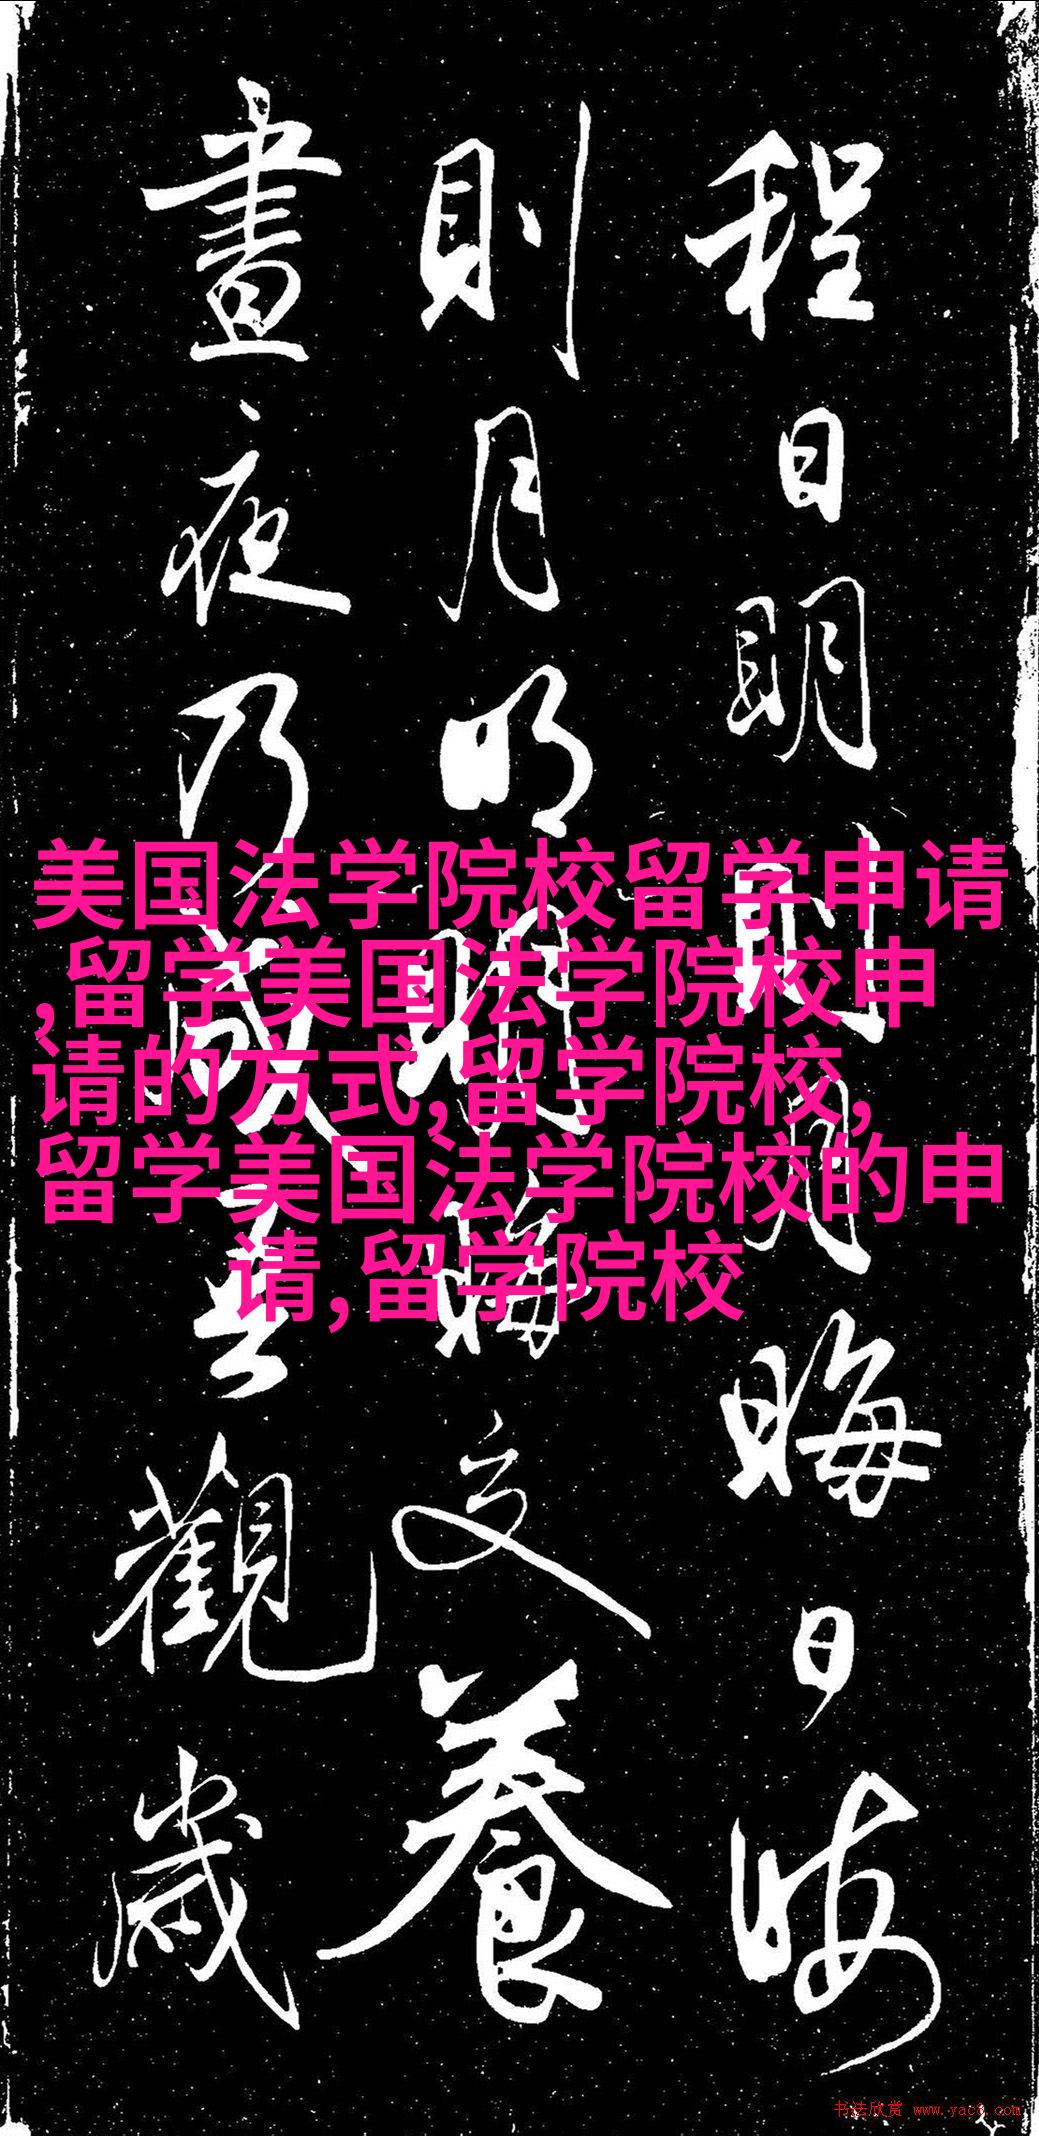 程日明則月晦日晦
則月明明晦交養
晝夜乃成吾觀歲
美国法学院校留学申请
,留学美国法学院校申
请的方式,留学院校,
留学美国法学院校的申
请,留学院校
书法欣赏 www.yac8.com